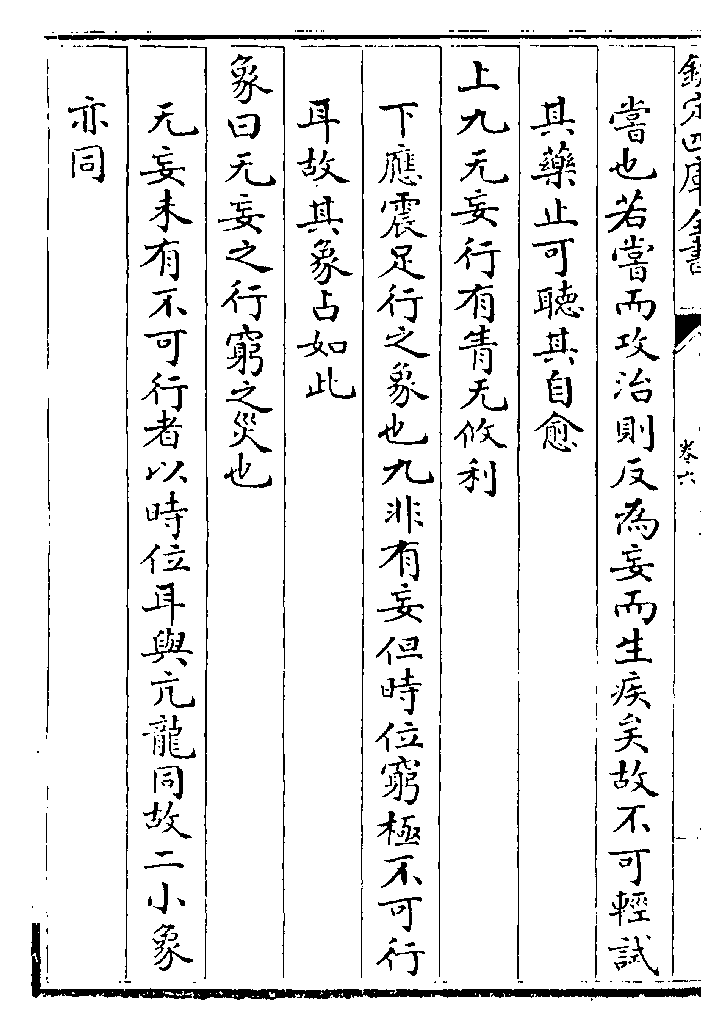 欽定四庫全書
卷六
嘗也若嘗而攻治則反為妄而生疾矣故不可輕試
其藥止可聽其自愈
上九无妄行有眚无攸利
下應震足行之象也九非有妄但時位窮極不可行
耳故其象占如此
象曰无妄之行窮之災也
无妄未有不可行者以時位耳與亢龍同故二小象
亦同